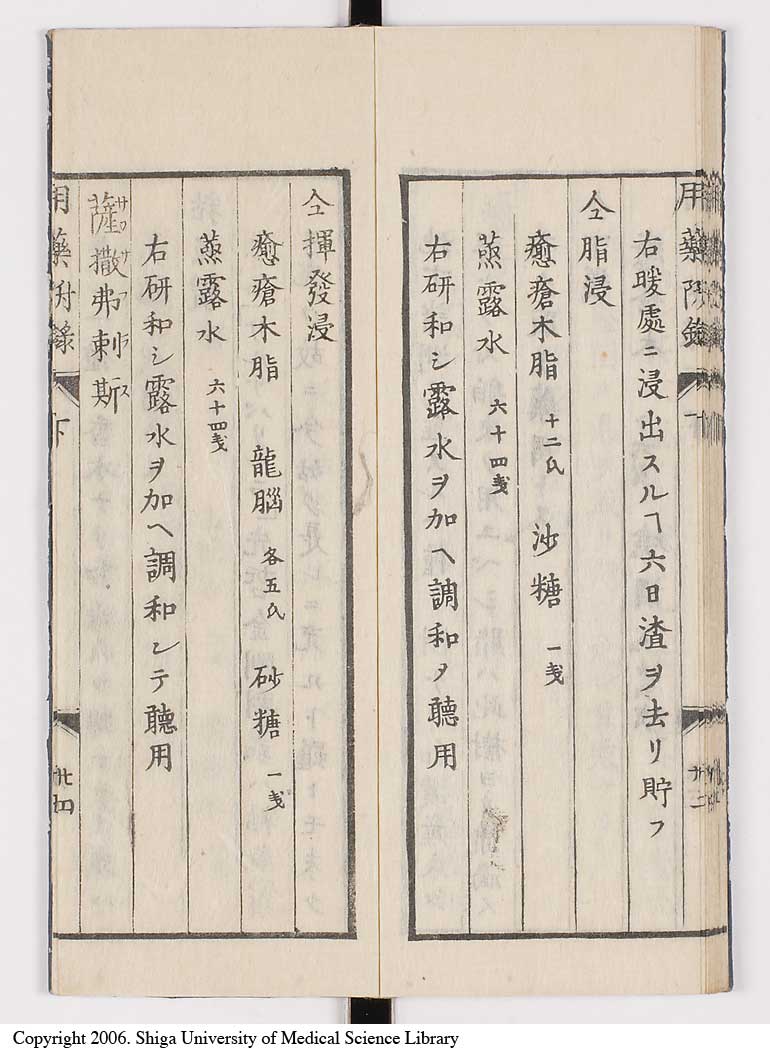 用藥附録
右暖處ニ浸出スルヿ六日渣ヲ去リ貯フ
仝脂浸
癒瘡木脂 十二氏 沙糖 一戔
蒸露水 六十四戔
右研和シ露水ヲ加ヘ調和ノ聴用
仝揮發浸
癒瘡木脂 龍腦 各五氏 砂糖 一戔
蒸露水 六十四戔
右研和シ露水ヲ加ヘ調和シテ聴用
薩撒弗剌斯
用藥附録 下 廿四
Copyright 2006. Shiga University of Medical Science Library